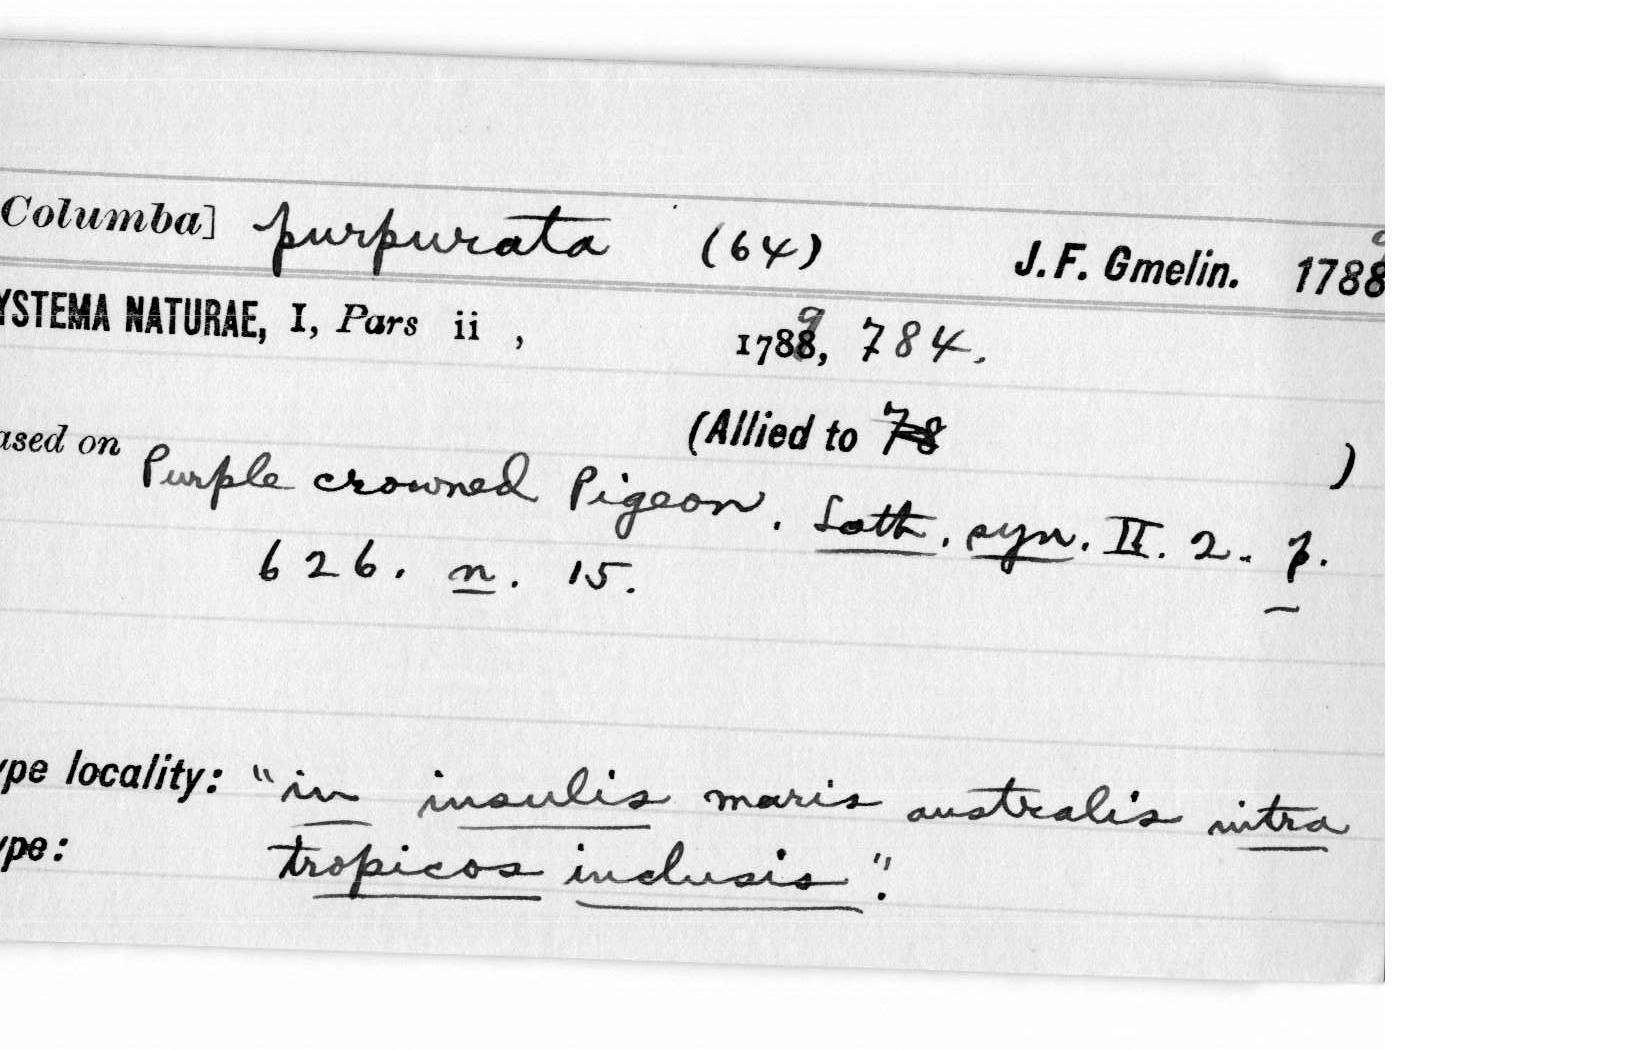 Columba] purpurata (64) J. F. Gmelin. 1788 9
YSTEMA NATURAE, I, Pars ii , 1788 9, 784.
(Allied to 78 )
ased on Purple crowned Pigeon. Lath. syn. II. 2. p.
626. n. 15.
ype locality: "in insulis maris australis intra
ype: tropicos inclusis".